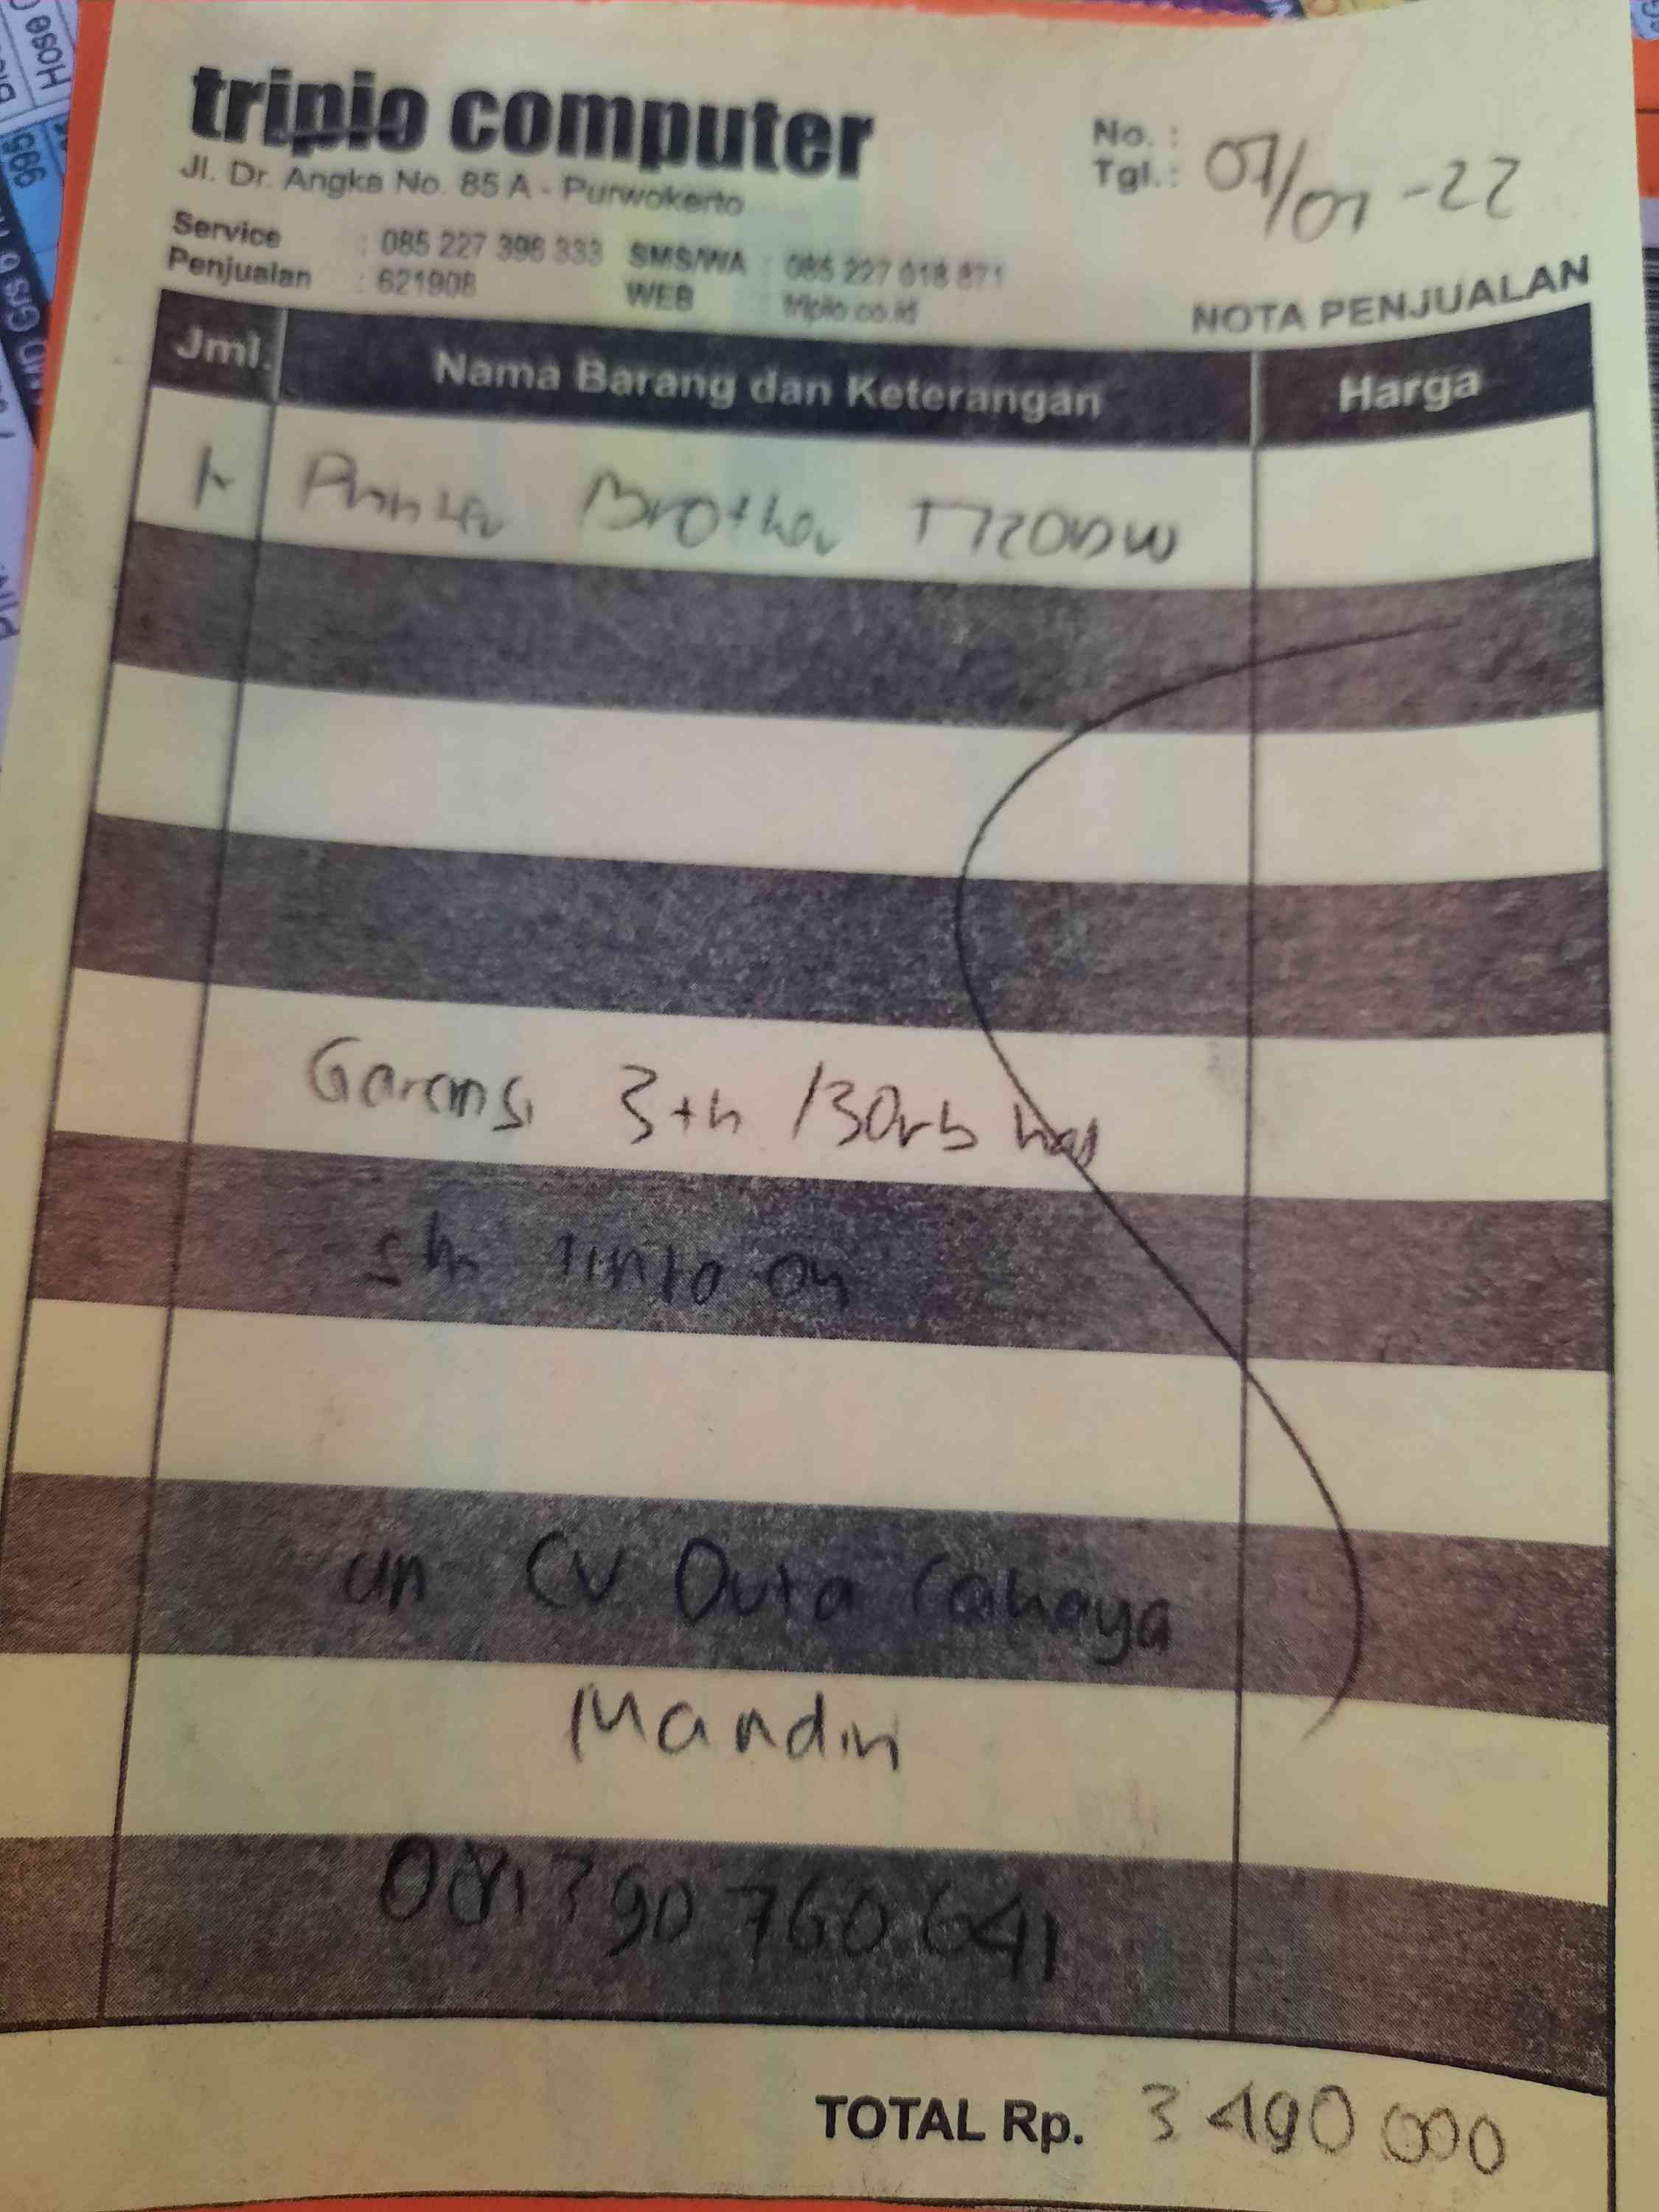 triplo computer
Jl. Dr. Angka No. 85 A - Purwokerto
Service : 085 227 396 333 SMS/WA : 085 227 018 871
Penjualan : 621908 WEB : triplo.co.id
No. :
Tgl. : 07/01-22
NOTA PENJUALAN
Jml. Nama Barang dan Keterangan Harga
1 Printer Brother T720DW
Garansi 3th /30rb hal
tinta ori
un CV Duta Cahaya
Mandiri
081390760641
TOTAL Rp. 3 490 000